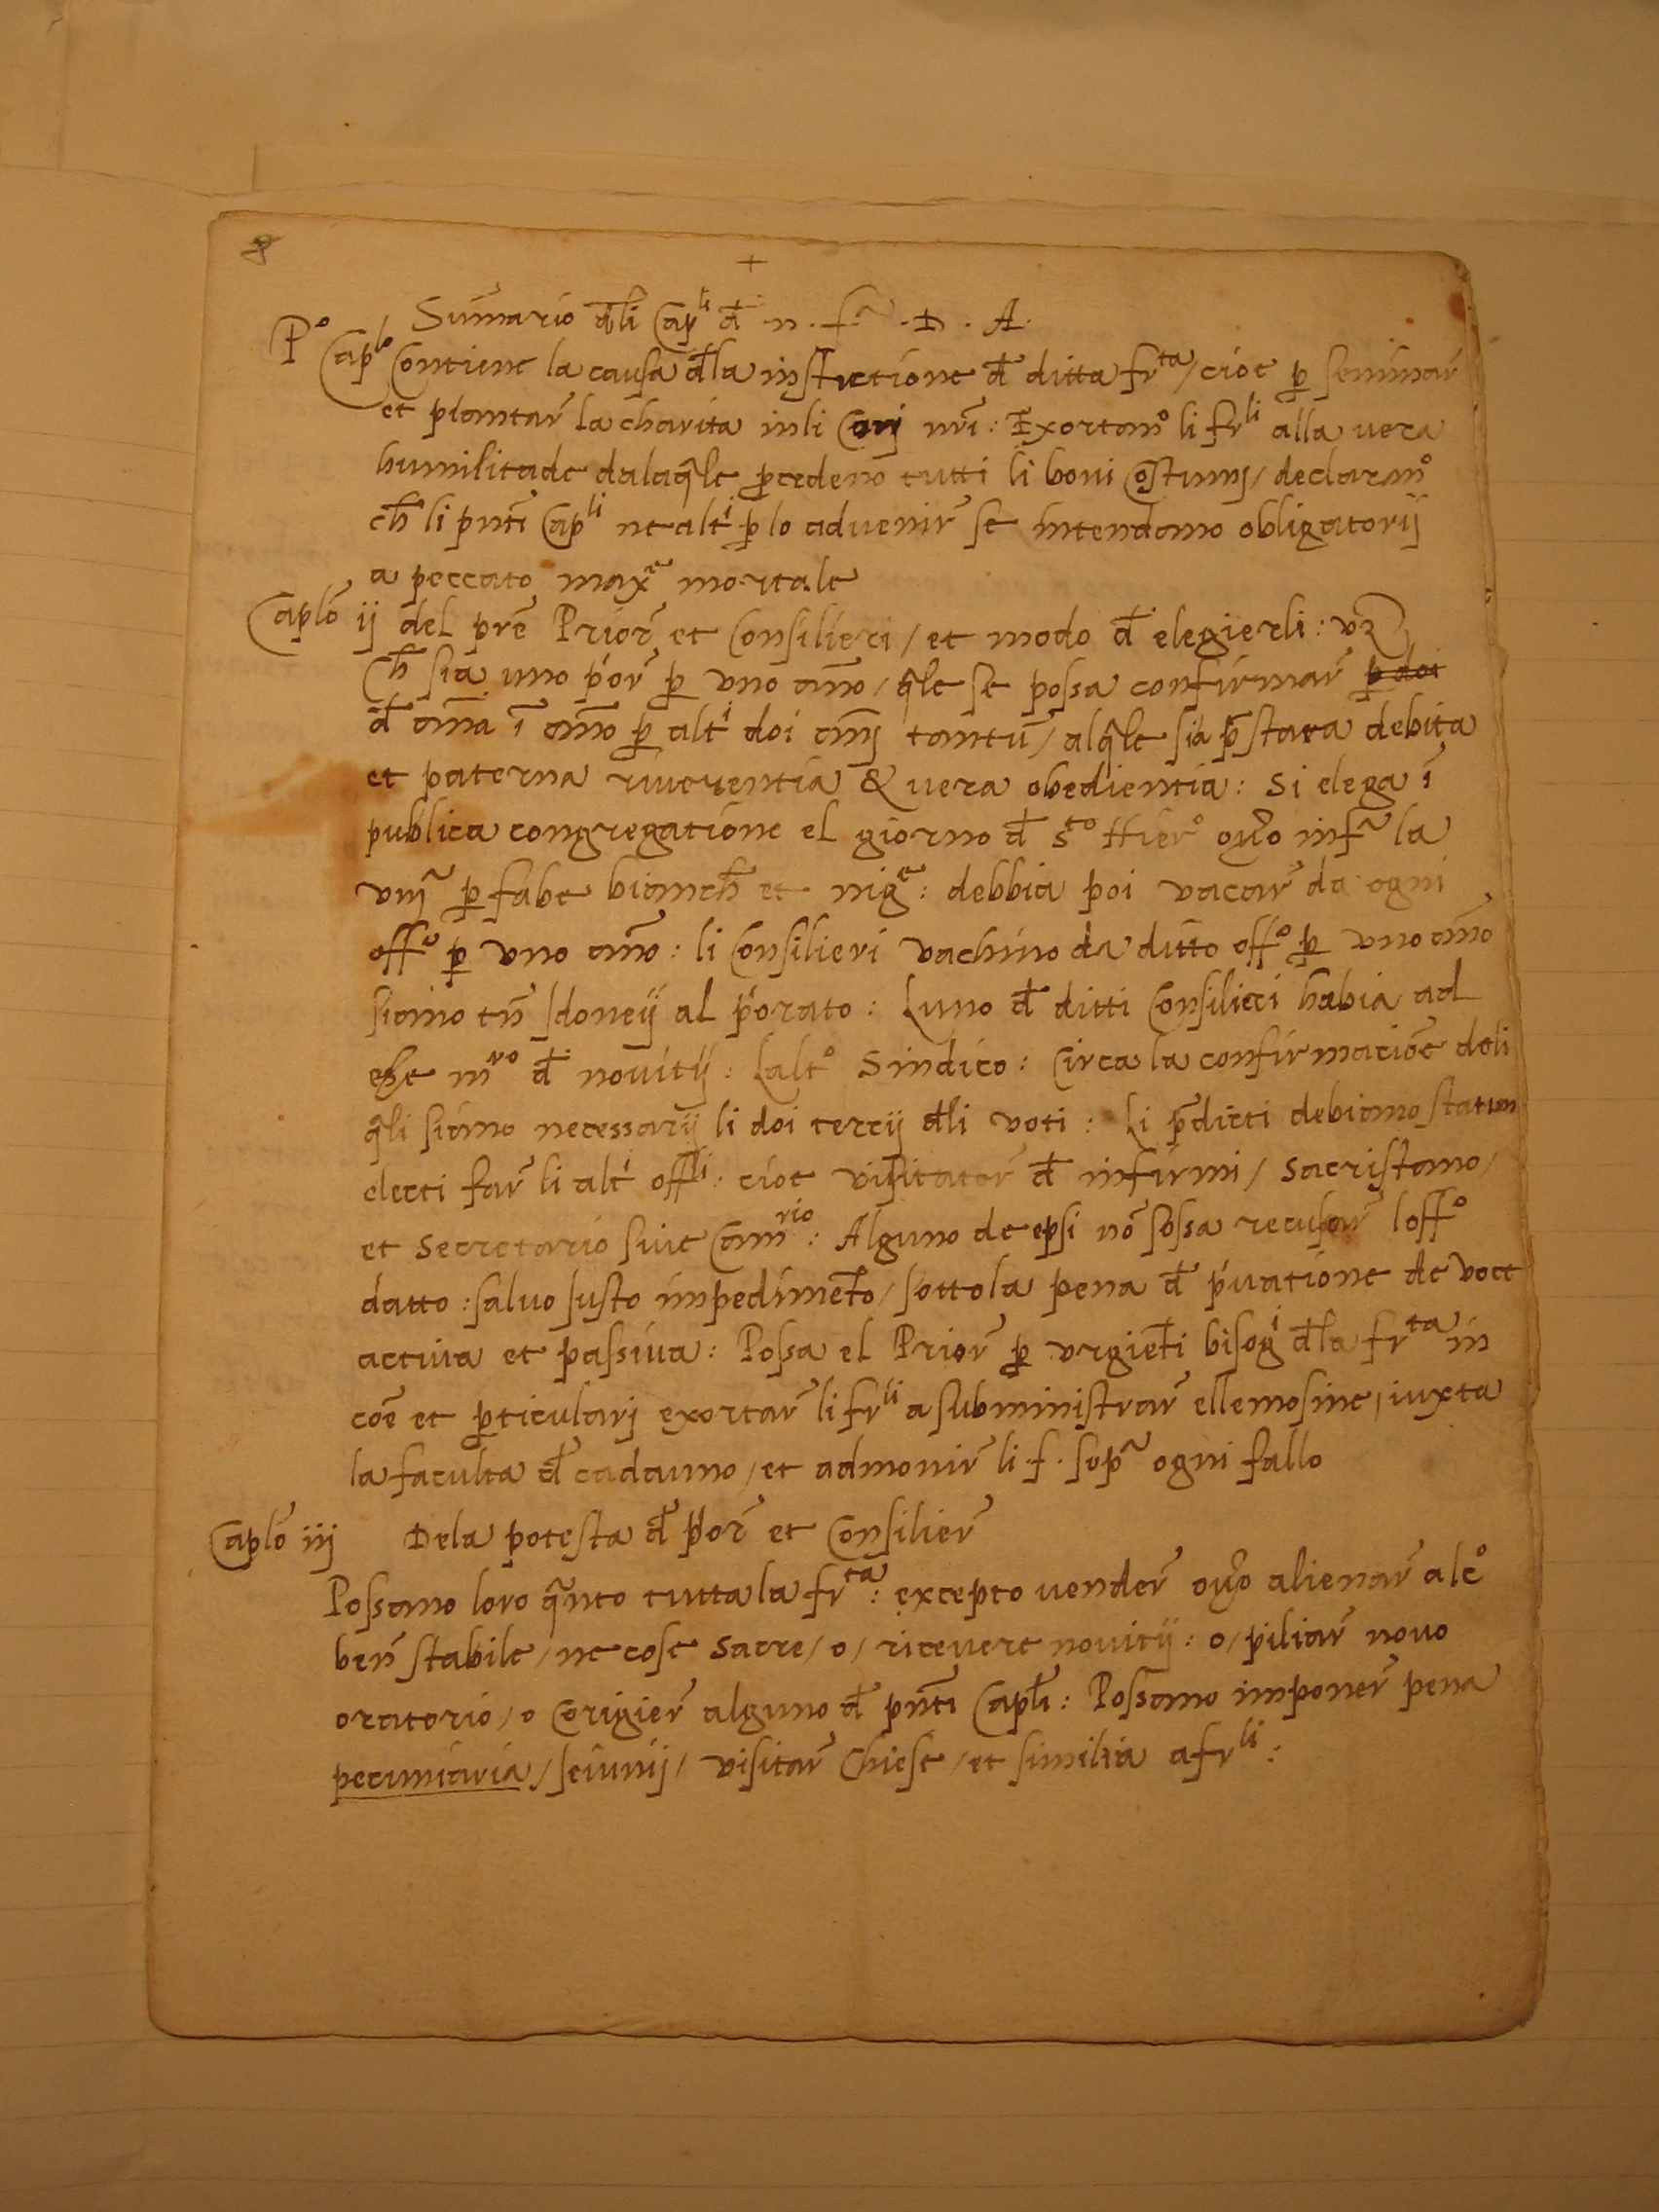 +
Sũmario đli Capˡⁱ đ n. f.ᵃ .D. A.
P° Capˡᵒ Contiene la causa đla institutione đ ditta frᵗᵃ/ cioe ꝑ seminar̃
et plantar̃ la charita inli nr̃i: Exortan° li frˡⁱ alla vera
humilitade dalaq̃le ꝓcedeno tutti li boni Costumj/ declaran°
ch̃ li pñti Capˡⁱ ne altⁱ ꝑ lo advenir̃ se intendano obligatorij
a peccato maxᵉ mortale
Caplõ ij del prẽ Prior̃ et Consilieri/ et modo đ elegierli: vꝫ
Ch̃ sia uno p'or̃ ꝑ vno ãno/ q̃le se possa confirmar̃ ꝑ doi
đ ãno ĩ ãno ꝑ altⁱ doi ãnj tantũ/ alq̃le sia p̃stata debita
et paterna riverentia & vera obedientia: Si elega ĩ
publica congregatione el giorno đ Sᵗᵒ Hier° oṽo infᵃ la
viijᵃ ꝑ fabe bianch̃ et nigᵉ: debbia poi vacar̃ da ogni
off° ꝑ vno ãno: li Consilieri vachino da ditto off° ꝑ vno ãno
siano tñ Idoneij al p'orato: Luno đ ditti Consilieri habia ad
esse mʳᵒ đ novitij: Lalt° Sindico: Circa la confirmatiõe deli
q̃li siano necessarij li doi tertij đli voti: Li p̃dicti debiano statim
electi far̃ li altⁱ offˡⁱ: cioe visitator̃ đ infirmi/ Sacristano/
et Secretario sive Canʳⁱᵒ: Alguno de epsi nõ possa recusar̃ loff°
datto: salvo Justo impedimẽto/ sotto la pena đ p'vatione de voce
activa et passiva: Possa el Prior̃ ꝑ vrgiẽti bisogⁱ đla frᵗᵃ in
coẽ et ꝑticularj exortar̃ li frˡⁱ a subministrar̃ ellemosine, iuxta
la faculta đ cadauno/ et admonir̃ li .f. sopᵃ ogni fallo
Caplõ iij Dela potesta đ p'or̃ et Consilier̃
Possano loro q̃nto tutta la frᵗᵃ: excepto vender̃ oṽo alienar̃ alc°
ben̄ stabile/ ne cose Sacre/ o/ ricevere novitij: o/ piliar̃ novo
oratorio/ o Corigier̃ alguno đ pñti Capłi: Possano imponer̃ pena
pecuniaria/ Jeiunij/ visitar̃ Chiese/ et similia a frˡⁱ: